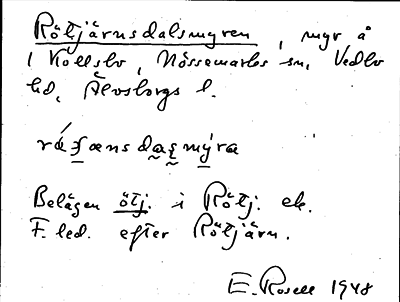 Rötjärnsdalsmyren, myr å
i Köllsbo, Nössemarks sn, Vedbo
hd, Älvsborgs l.
Belägen ötj. i Rötj. ek.
F. led. efter Rötjärn.
E. Rosell 1948